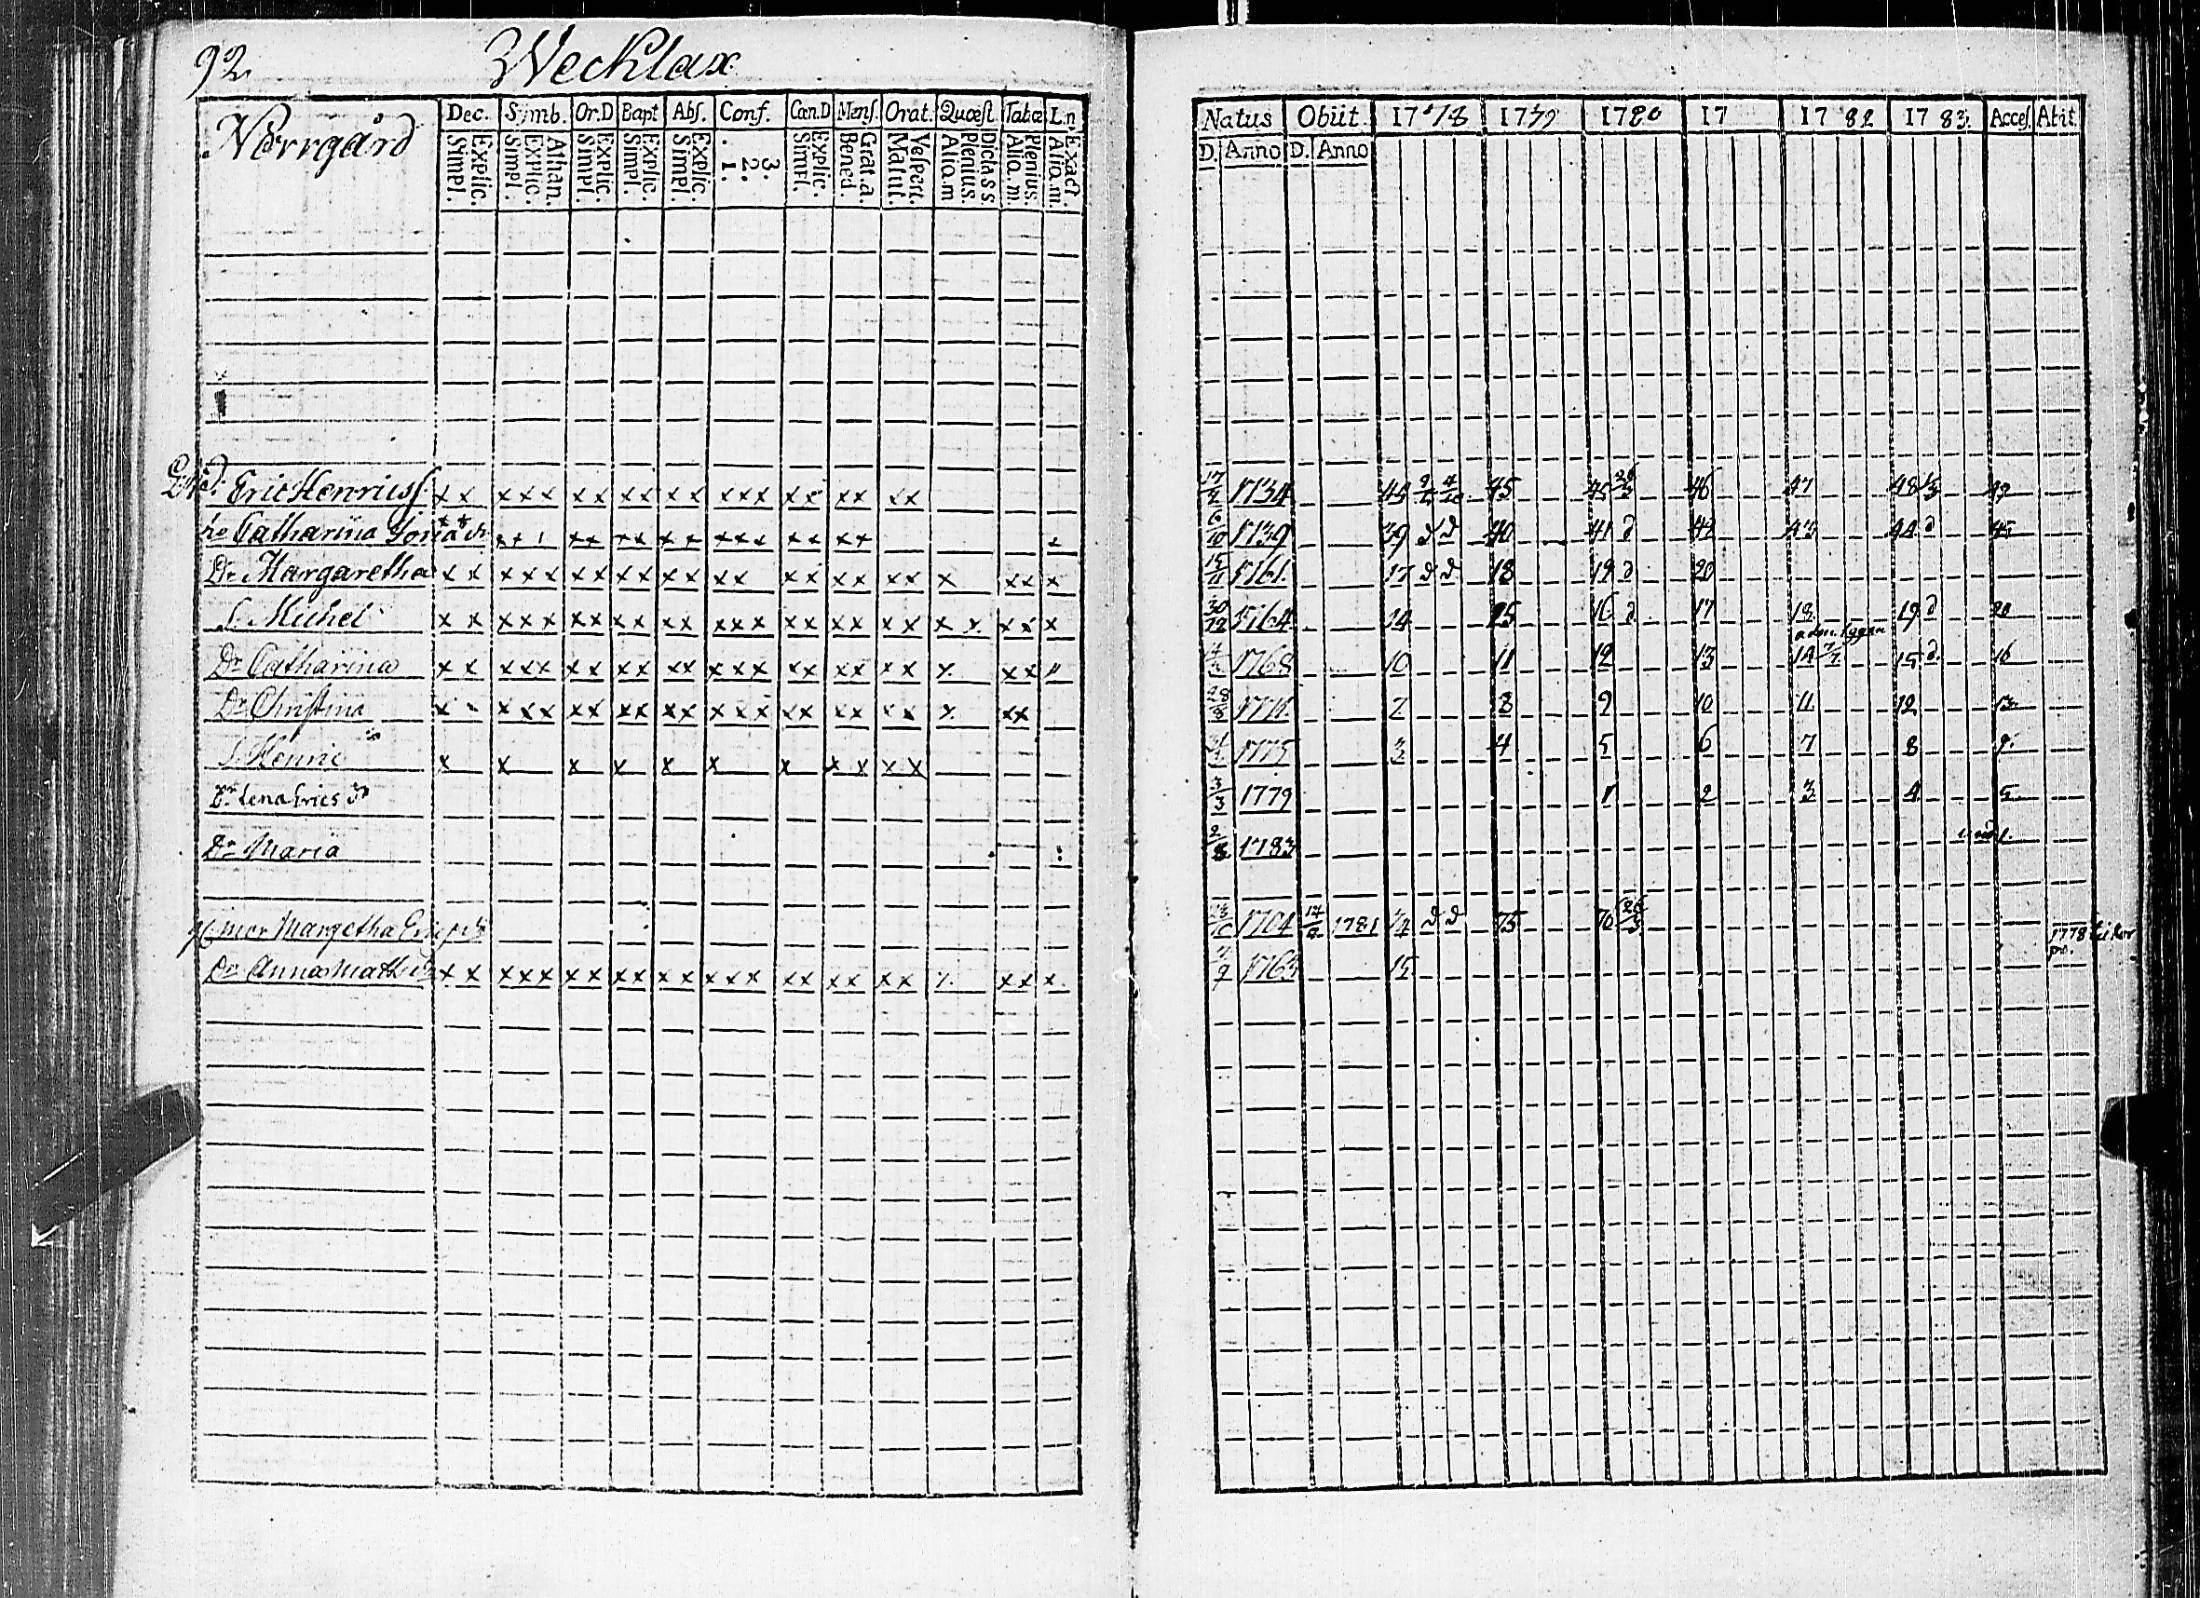 92. Wecklax
Norrgård Dec. Symb. Or.D Bapt Abs. Conf. Cœn.D Mens. Orat. Quæst Tabæ L.n.
Simpl. Explic. Simpl. Explic. Athan. Simpl. Explic. Simpl. Explic. Simpl. Explic. 1. 2. 3. Simpl. Explic. Bened. Grat.a. Matut. Vespert. Aliq.m Plenius. Dictass. Aliq.m. Plenius. Aliq.m. Exact.
Eric Henricss. x x x x x x x x x x x x x x x x x x x x
Catharina x x 1 x x x x x x x x x x x x x x
Dr. Margaretha x x x x x x x x x x x x x x x x x x x x x x x
S. Michel x x x x x x x x x x x x x x x x x x x x x x x x x
Dr. Catharina x x x x x x x x x x x x x x x x x x x x x x x
Dr. Christina x x x x x x x x x x x x x x x x x x x x x x
S. Henric x x x x x x x x x x x
Dr. Lena Erics dr
Dr. Maria
Margetha
Dr. Anna x x x x x x x x x x x x x x x x x x x x x x x x
Natus Obiit. 1778 1779 1780 17 1782 1783. Acces. Abit.
D. Anno D. Anno
1734 45 45 46 47 48 49
6/10 1739 39 d d 40 41 d 42 43 44 d 45
15/11 1761. 17 d d 18 19 d 20
30/12 1764 14 15 16 d 17 18 19 d 20
1768 10 11 12 13 14 15 d. 16
28/8 1771. 7 8 9 10 11 12 13
1775 3 4 5 6 7 8 9.
3/3 1779 1 2 3 4 5
2/8 1783
1704 1781 74 d d 75 76 26/3
1763 15 1778